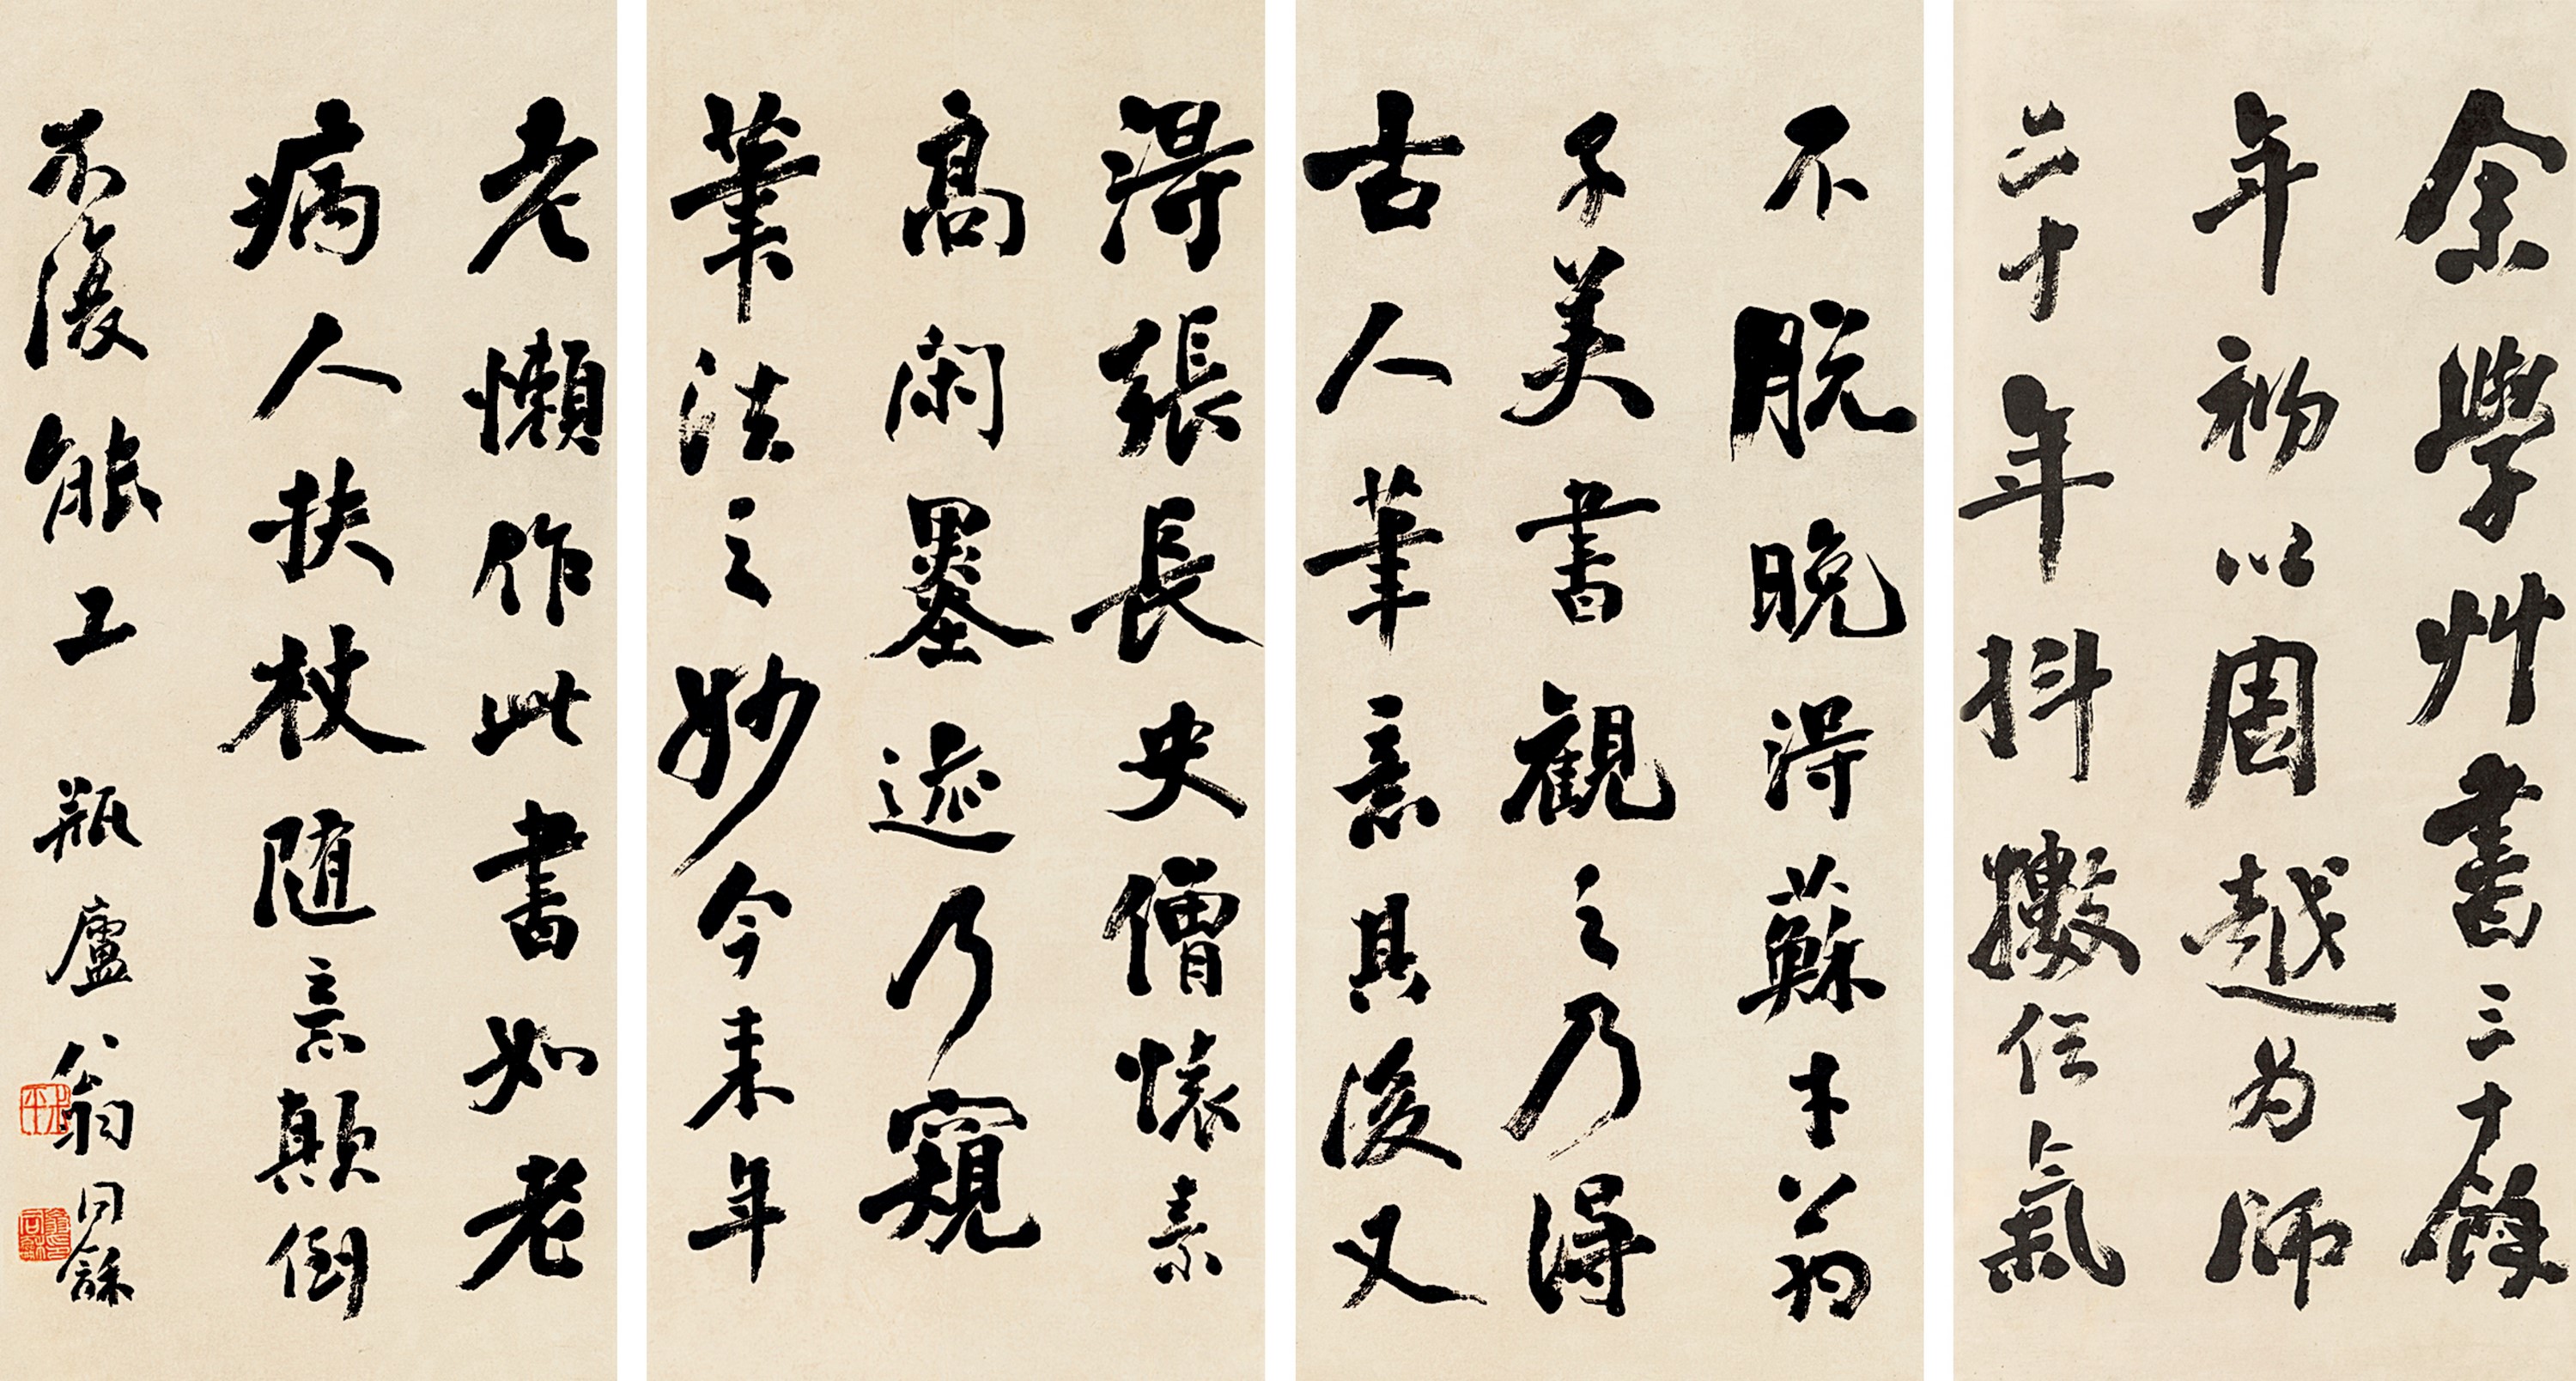 余學艸書三十餘
年初以周越为師
二十年抖擻俗氣
不脫晚得蘇才翁
子美書觀之乃得
古人筆意其後又
得張長史僧懷素
高閑墨迹乃窺
筆法之妙今來年
老懶作此書如老
病人扶杖随意顛倒
不復能工 瓶廬翁同龢
叔平
翁同龢印